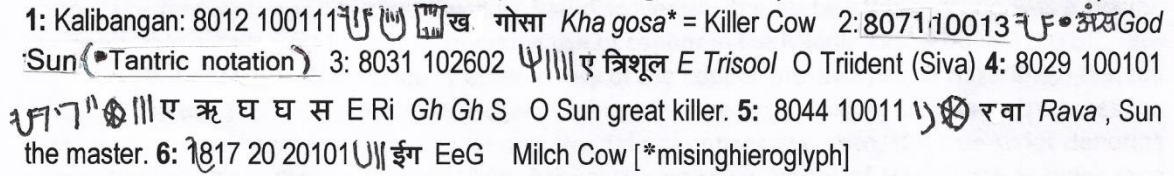 1: Kalibangan: 8012 100111 ख गोसा Kha gosa* = Killer Cow 2: 8071 10013 God
Sun (•Tantric notation) 3: 8031 102602 ए त्रिशूल E Trisool O Triident (Siva) 4: 8029 100101
ए ऋ घ घ स E Ri Gh Gh S O Sun great killer. 5: 8044 10011 र वा Rava , Sun
the master. 6: 7817 20 20101 ईग EeG Milch Cow [*misinghieroglyph]